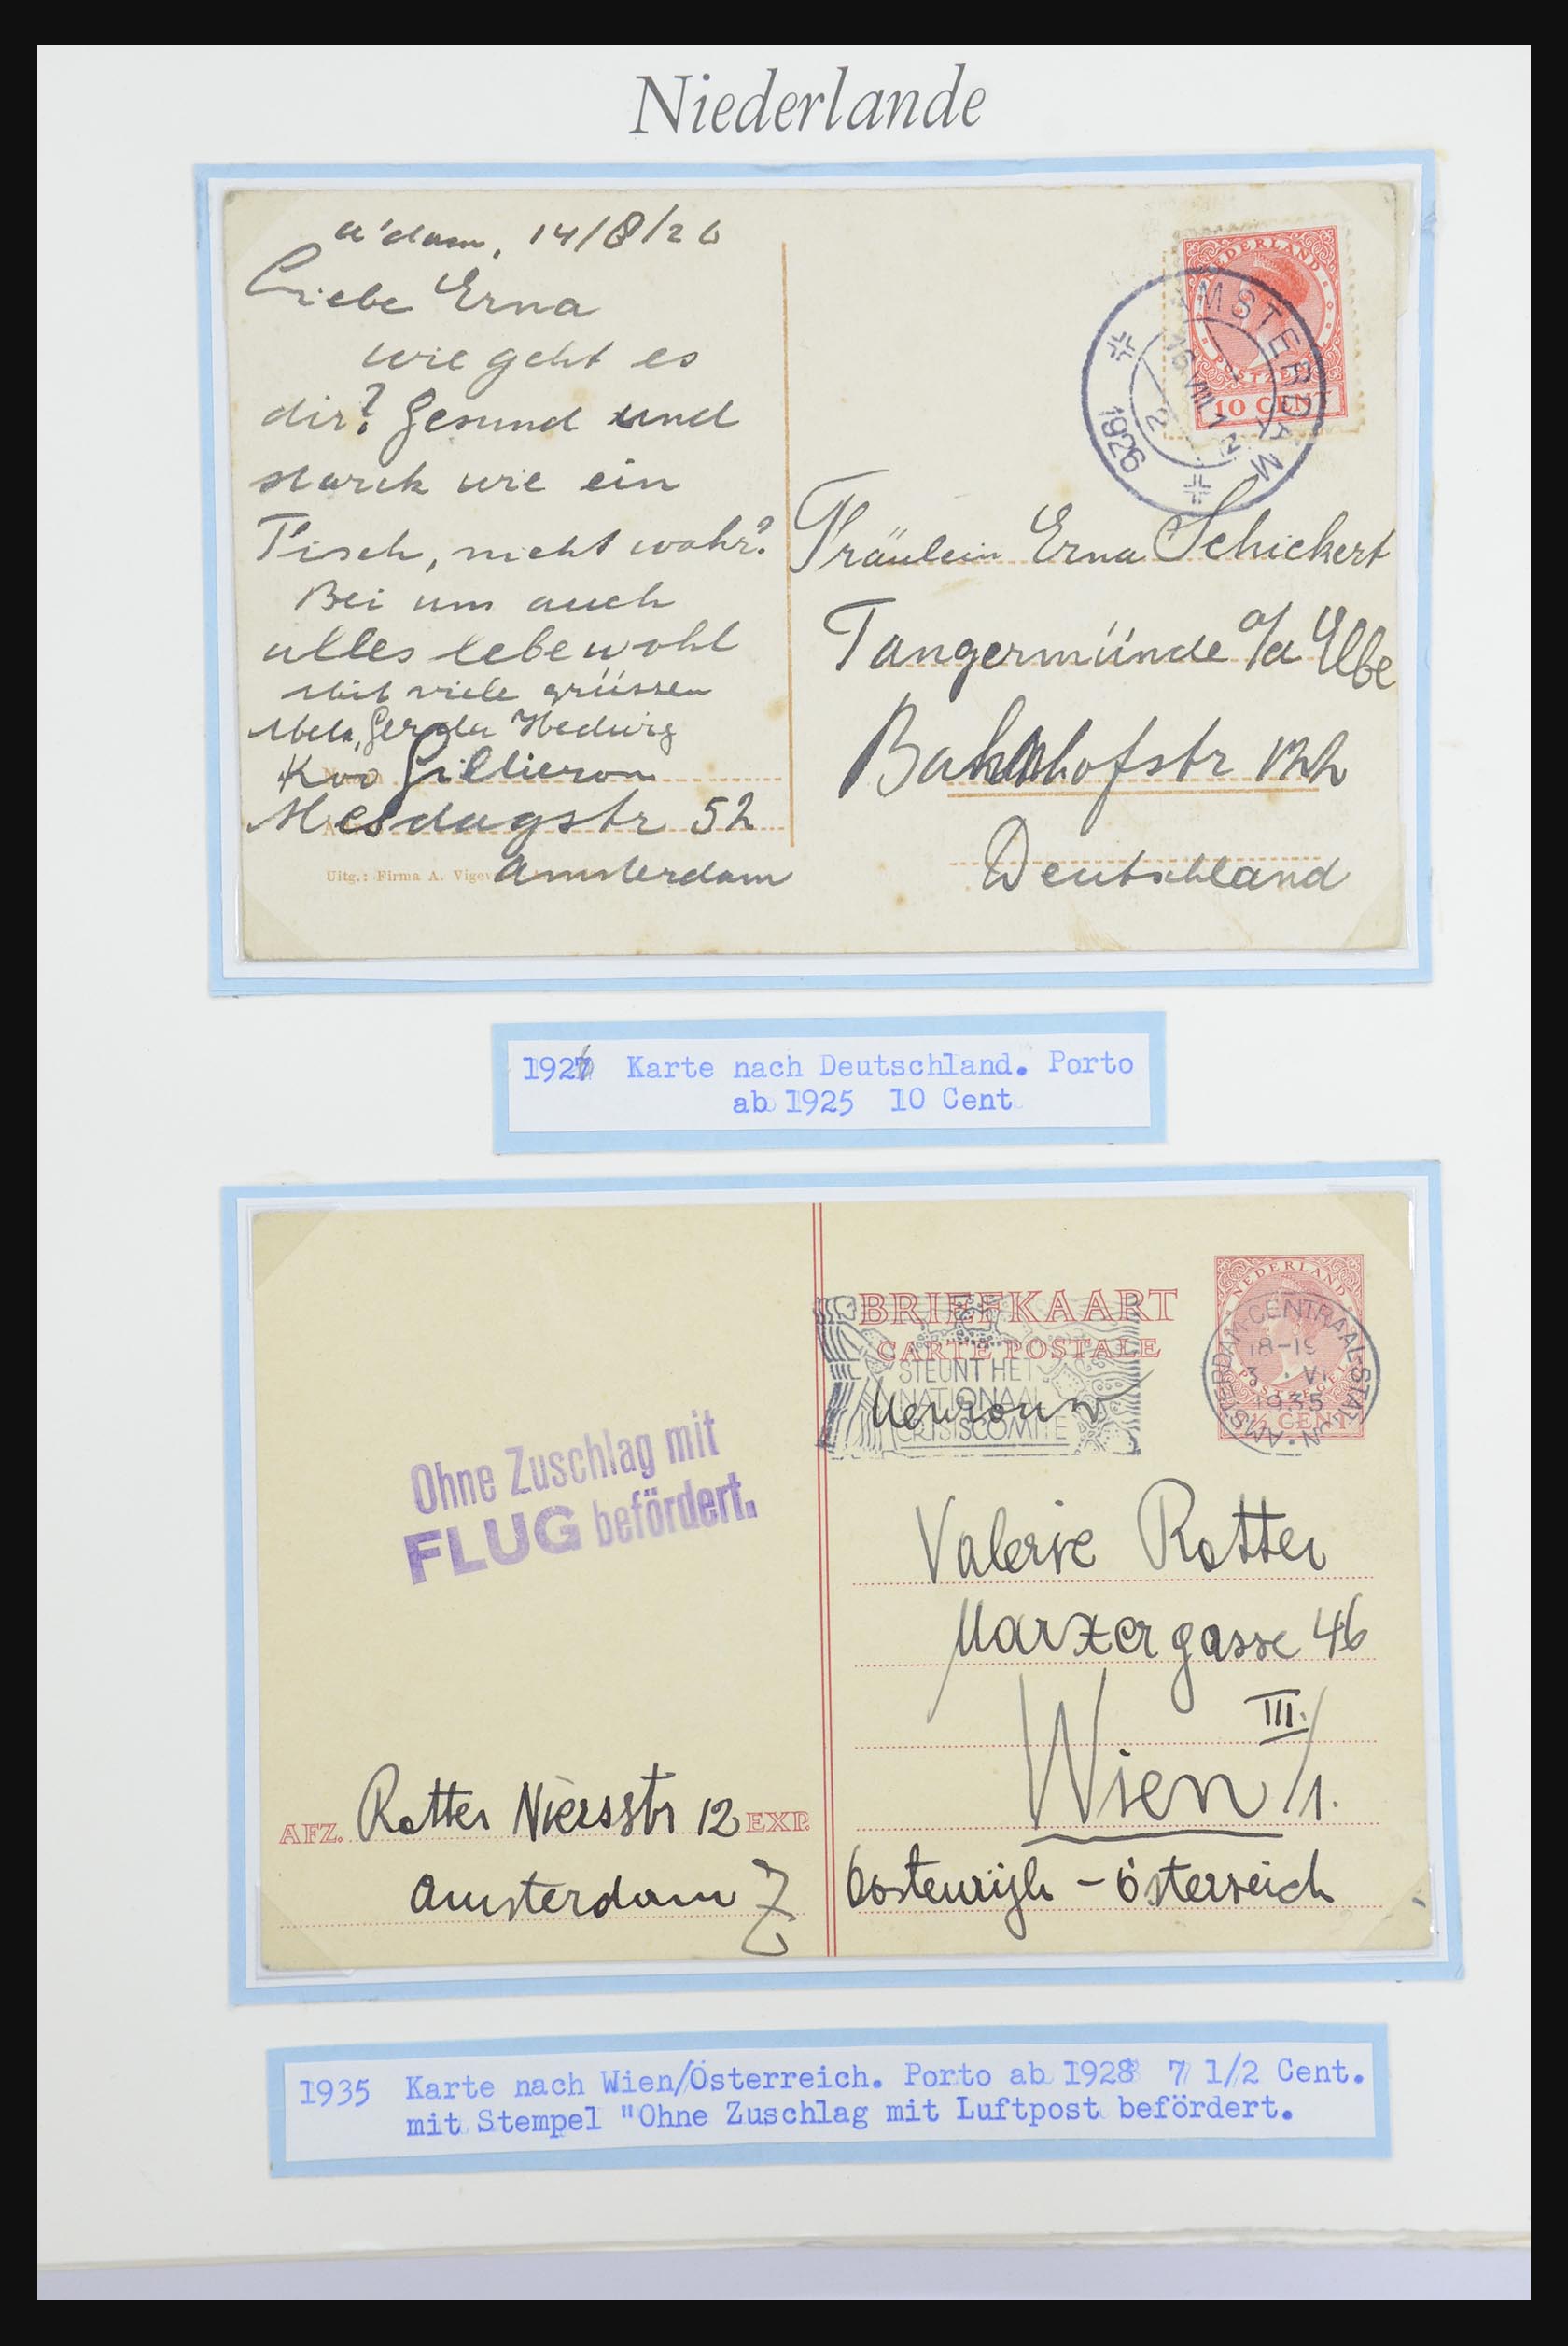 Niederlande
A'dam, 14/8/26
Liebe Erna
wie geht es
dir? Gesund und
starck wie ein
Fisch, nicht wahr?
Bei uns auch
alles lebewohl
Mit viele grüssen
Gerda Hedwig
Gillieron
Mesdagstr 52
Amsterdam
Uitg.: Firma A. Vigev
NEDERLAND
POSTZEGEL
10 CENT
AMSTERDAM
16 VIII 12
1926
Fräulein Erna Schickert
Tangermünde a/d Elbe
Bahnhofstr
Deutschland
1926 Karte nach Deutschland. Porto
ab 1925 10 Cent
BRIEFKAART
CARTE POSTALE
STEUNT HET
NATIONAAL
CRISISCOMITE
Mevrouw
NEDERLAND
POSTZEGEL
7½ CENT
AMSTERDAM-CENTRAAL-STATION
18-19
3 VI
1935
Ohne Zuschlag mit
FLUG befördert.
Valerie Rotter
Marxergasse 46
III.
Wien /1.
Oostenrijk - Österreich
AFZ. Rotter Niersstr 12 EXP.
Amsterdam Z
1935 Karte nach Wien/Österreich. Porto ab 1928 7 1/2 Cent.
mit Stempel "Ohne Zuschlag mit Luftpost befördert.